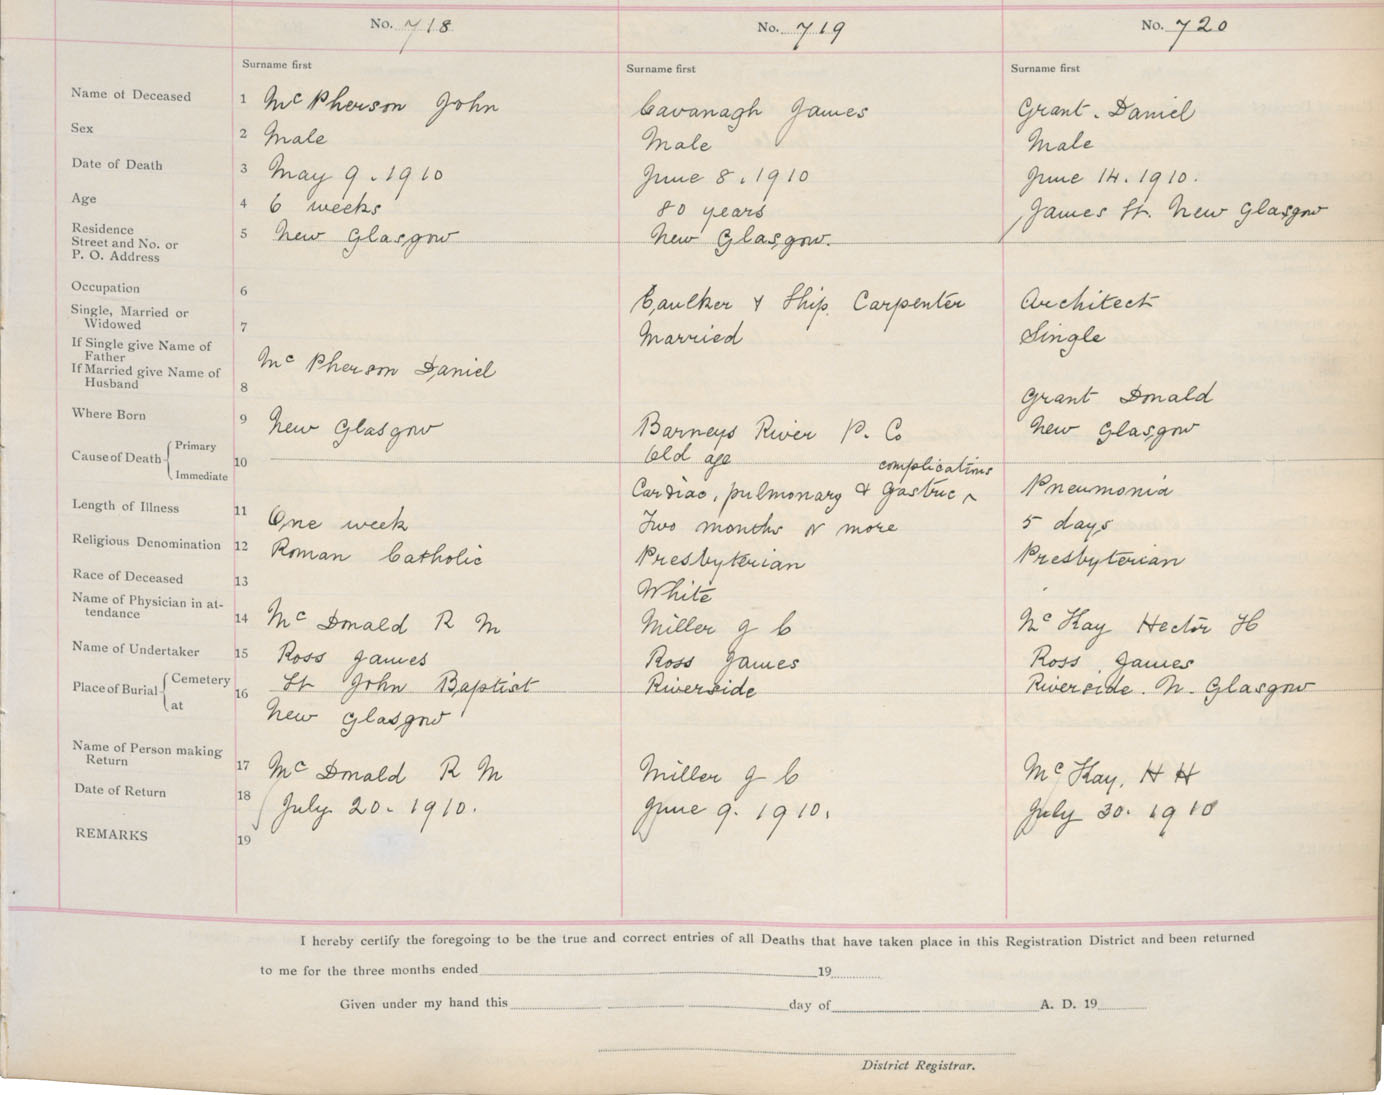 No. 718 No. 719 No. 720
Surname first Surname first Surname first
Name of Deceased 1 McPherson John Cavanagh James Grant. Daniel
Sex 2 Male Male Male
Date of Death 3 May 9. 1910 June 8. 1910 June 14. 1910.
Age 4 6 weeks 80 years James St. New Glasgow
Residence
Street and No. or 5 New Glasgow New Glasgow.
P. O. Address
Occupation 6 Caulker & Ship Carpenter Architect
Single, Married or
Widowed 7 Married Single
If Single give Name of
Father McPherson Daniel
If Married give Name of
Husband 8 Grant Donald
Where Born 9 New Glasgow Barneys River P. Co New Glasgow
Cause of Death { Primary Old age
Immediate 10 Cardiac, pulmonary & gastric ^ complications Pneumonia
Length of Illness 11 One week Two months or more 5 days
Religious Denomination 12 Roman Catholic Presbyterian Presbyterian
Race of Deceased 13 White
Name of Physician in at-
tendance 14 McDonald R M Miller J C McKay Hector H
Name of Undertaker 15 Ross James Ross James Ross James
Place of Burial { Cemetery 16 St John Baptist Riverside Riverside. N. Glasgow
at New Glasgow
Name of Person making
Return 17 McDonald R M Miller J C McKay, H H
Date of Return 18 July 20. 1910. June 9. 1910. July 30. 1910
REMARKS 19
I hereby certify the foregoing to be the true and correct entries of all Deaths that have taken place in this Registration District and been returned
to me for the three months ended 19
Given under my hand this day of A. D. 19
District Registrar.